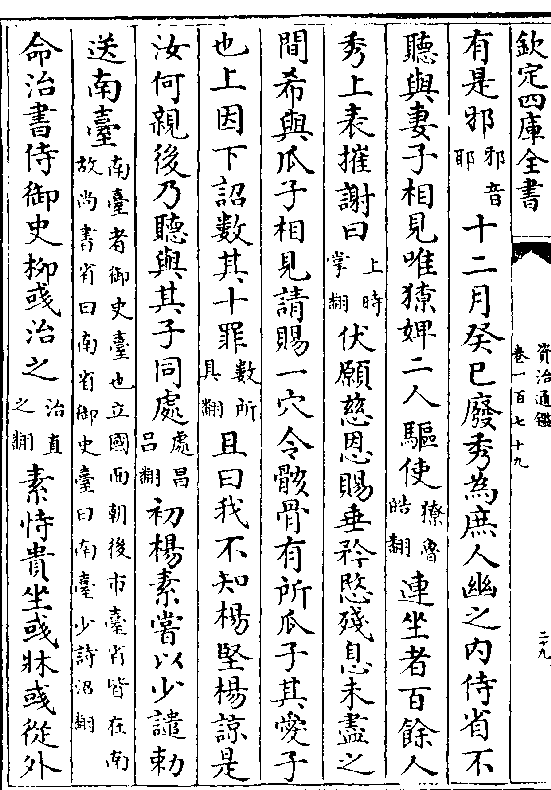 欽定四庫全書
資治通鑑
卷一百七十九
二十九
有是邪邪音耶十二月癸巳廢秀為庶人幽之内侍省不
聽與妻子相見唯獠婢二人驅使獠魯皓翻連坐者百餘人
秀上表摧謝曰上時掌翻伏願慈恩賜垂矜愍殘息未盡之
間希與瓜子相見請賜一穴令骸骨有所瓜子其愛子
也上因下詔數其十罪數所具翻且曰我不知楊堅楊諒是
汝何親後乃聽與其子同處處昌吕翻初楊素嘗以少譴勅
送南臺南臺者御史臺也立國面朝後市臺省皆在南故尚書省曰南省御史臺曰南臺少詩沼翻
命治書侍御史柳彧治之治直之翻素恃貴坐彧牀彧從外